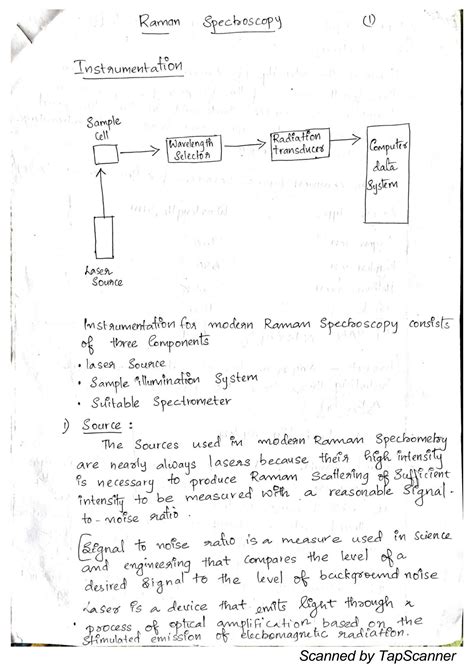 Raman Spectroscopy (1)
Instrumentation
Sample
Cell
Wavelength
Selector
Radiation
transducer
Computer
data
System
Laser
Source
Instrumentation for modern Raman Spectroscopy consists
of three Components
• laser Source
• Sample illumination System
• Suitable Spectrometer
1) Source :
The Sources used in modern Raman Spectrometry
are nearly always lasers because their high intensity
is necessary to produce Raman Scattering of Sufficient
intensity to be measured with a reasonable Signal-
to-noise ratio.
Signal to noise ratio is a measure used in science
and engineering that compares the level of a
desired Signal to the level of background noise
Laser is a device that emits light through
process of optical amplification based on the
Stimulated emission of electromagnetic radiation.
Scanned by TapScanner